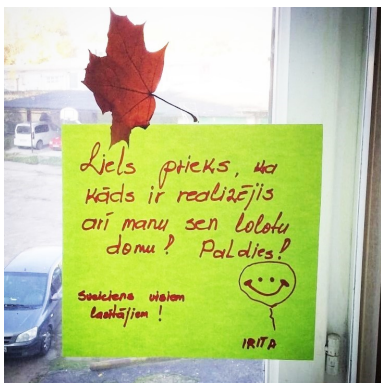 Liels prieks, ka
kāds ir realizējis
arī manu sen lolotu
domu! Paldies!
Sveiciens visiem
lasītājiem!
IRITA